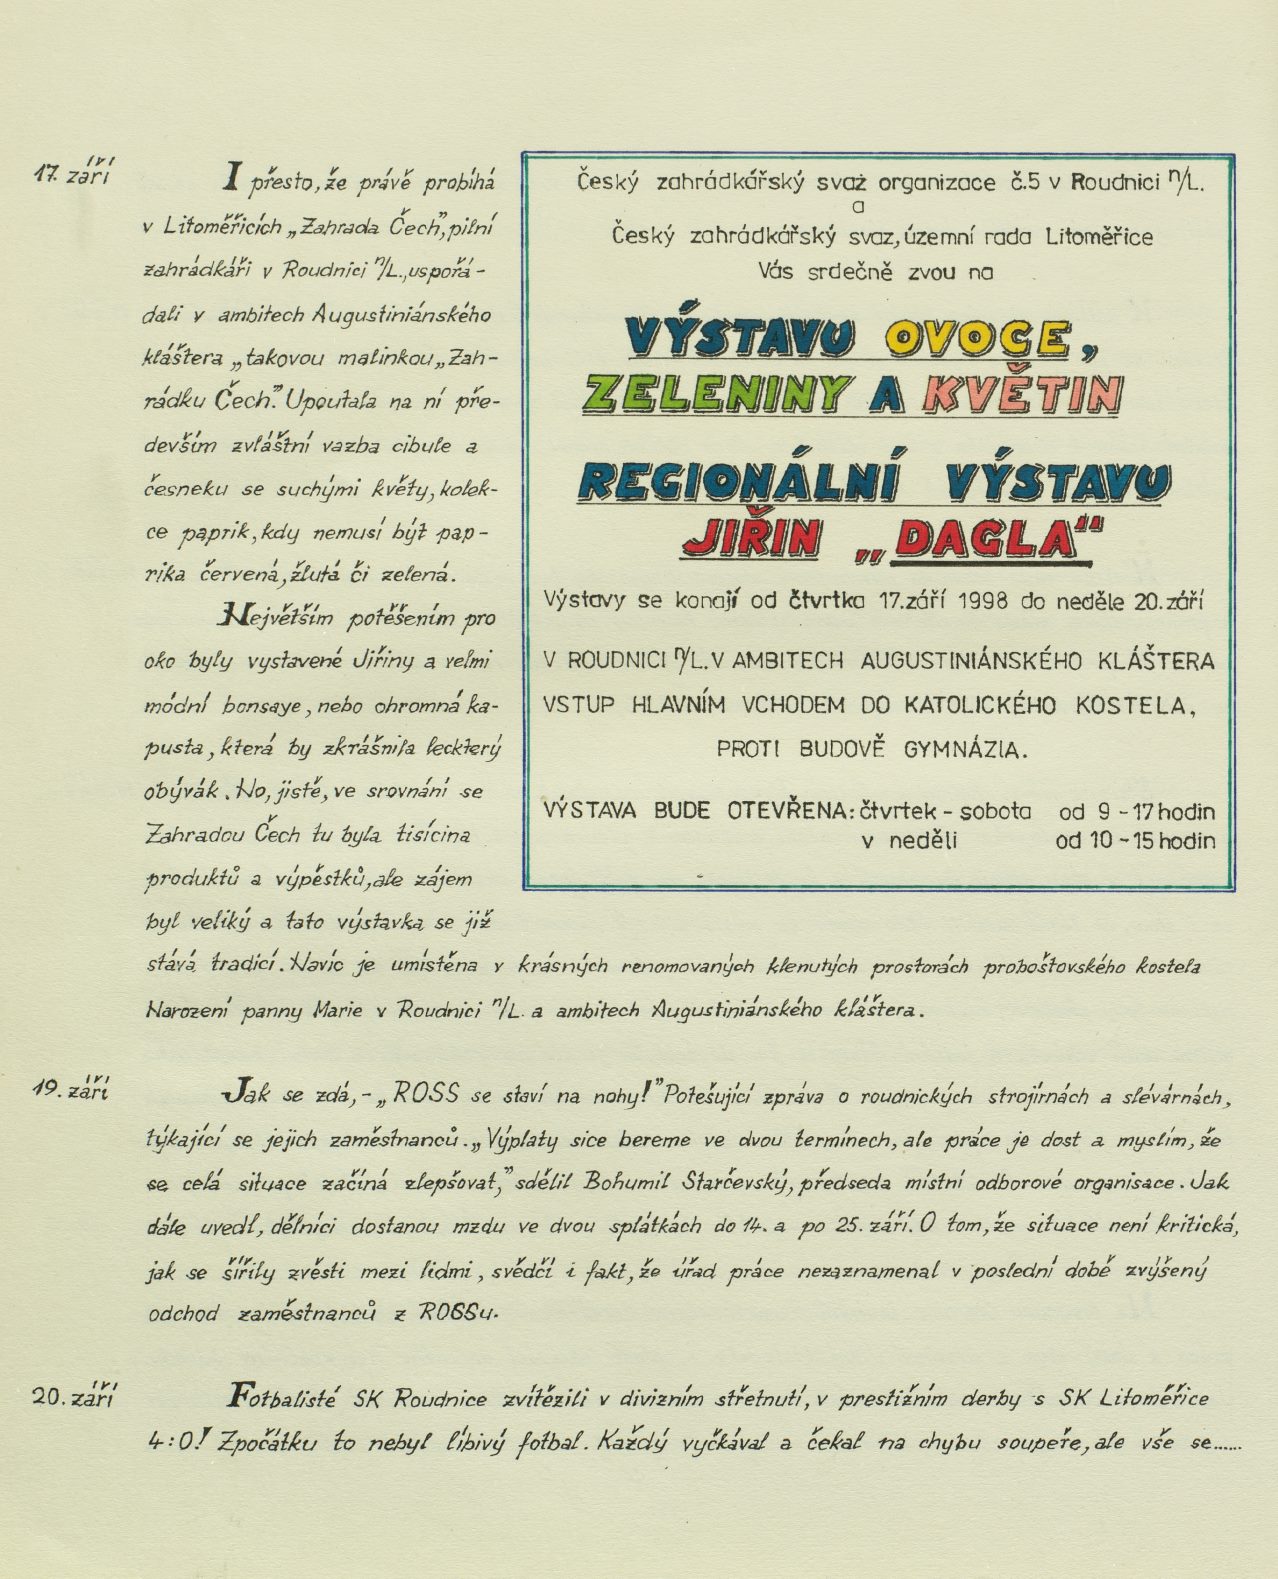 17. září
I přesto, že právě probíhá
v Litoměřicích „Zahrada Čech”, pilní
zahrádkáři v Roudnici n/L., uspořá-
dali v ambitech Augustiniánského
kláštera „takovou malinkou „Zah-
rádku Čech”. Upoutala na ní pře-
devším zvláštní vazba cibule a
česneku se suchými květy, kolek-
ce paprik, kdy nemusí být pap-
rika červená, žlutá či zelená.
Největším potěšením pro
oko byly vystavené Jiřiny a velmi
módní bonsaye, nebo ohromná ka-
pusta, která by zkrášnila leckterý
obývák. No, jistě, ve srovnání se
Zahradou Čech tu byla tisícina
produktů a výpěstků, ale zájem
byl veliký a tato výstavka se již
stává tradicí. Navíc je umístěna v krásných renomovaných klenutých prostorách proboštovského kostela
Narození panny Marie v Roudnici n/L. a ambitech Augustiniánského kláštera.
Český zahrádkářský svaz organizace č.5 v Roudnici n/L.
a
Český zahrádkářský svaz, územní rada Litoměřice
Vás srdečně zvou na
VÝSTAVU OVOCE,
ZELENINY A KVĚTIN
REGIONÁLNÍ VÝSTAVU
JIŘIN „DAGLA“
Výstavy se konají od čtvrtka 17.září 1998 do neděle 20.září
V ROUDNICI n/L. V AMBITECH AUGUSTINIÁNSKÉHO KLÁŠTERA
VSTUP HLAVNÍM VCHODEM DO KATOLICKÉHO KOSTELA,
PROTI BUDOVĚ GYMNÁZIA.
VÝSTAVA BUDE OTEVŘENA: čtvrtek - sobota od 9 - 17 hodin
v neděli od 10 - 15 hodin
19. září
Jak se zdá, - „ROSS se staví na nohy!” Potešující zpráva o roudnických strojírnách a slévárnách,
týkající se jejich zaměstnanců. „Výplaty sice bereme ve dvou termínech, ale práce je dost a myslím, že
se celá situace začíná zlepšovat,” sdělil Bohumil Starčevský, předseda místní odborové organisace. Jak
dále uvedl, dělníci dostanou mzdu ve dvou splátkách do 14. a po 25. září. O tom, že situace není kritická,
jak se šířily zvěsti mezi lidmi, svědčí i fakt, že úřad práce nezaznamenal v poslední době zvýšený
odchod zaměstnanců z ROSSu.
20. září
Fotbalisté SK Roudnice zvítězili v divizním střetnutí, v prestižním derby s SK Litoměřice
4:0! Zpočátku to nebyl líbivý fotbal. Každý vyčkával a čekal na chybu soupeře, ale vše se......